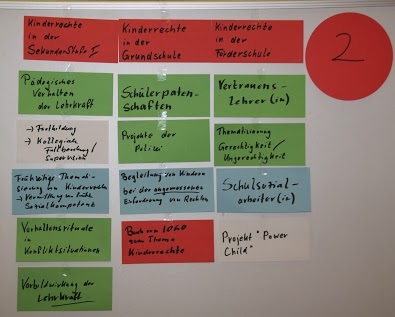 Kinderrechte
in der
Sekundarstufe I
Pädagisches
Verhalten
der Lehrkraft
→ Fortbildung
→ Kollegiale
Fallberatung/
Supervision
Frühzeitige Themati-
sierung von Kinderrechten
→ Vermittlung von früher
Sozialkompetenz
Verhaltensrituale
in
Konfliktsituationen
Vorbildwirkung der
Lehrkraft
Kinderrechte
in der
Grundschule
Schülerpaten-
schaften
Projekte der
Polizei
Begleitung von Kindern
bei der angemessenen
Einforderung von Rechten
Buch von LOGO
zum Thema
Kinderrechte
Kinderrechte
in der
Förderschule
Vertrauens-
lehrer(in)
Thematisierung
Gerechtigkeit/
Ungerechtigkeit
Schulsozial-
arbeiter(in)
Projekt "Power
Child"
2